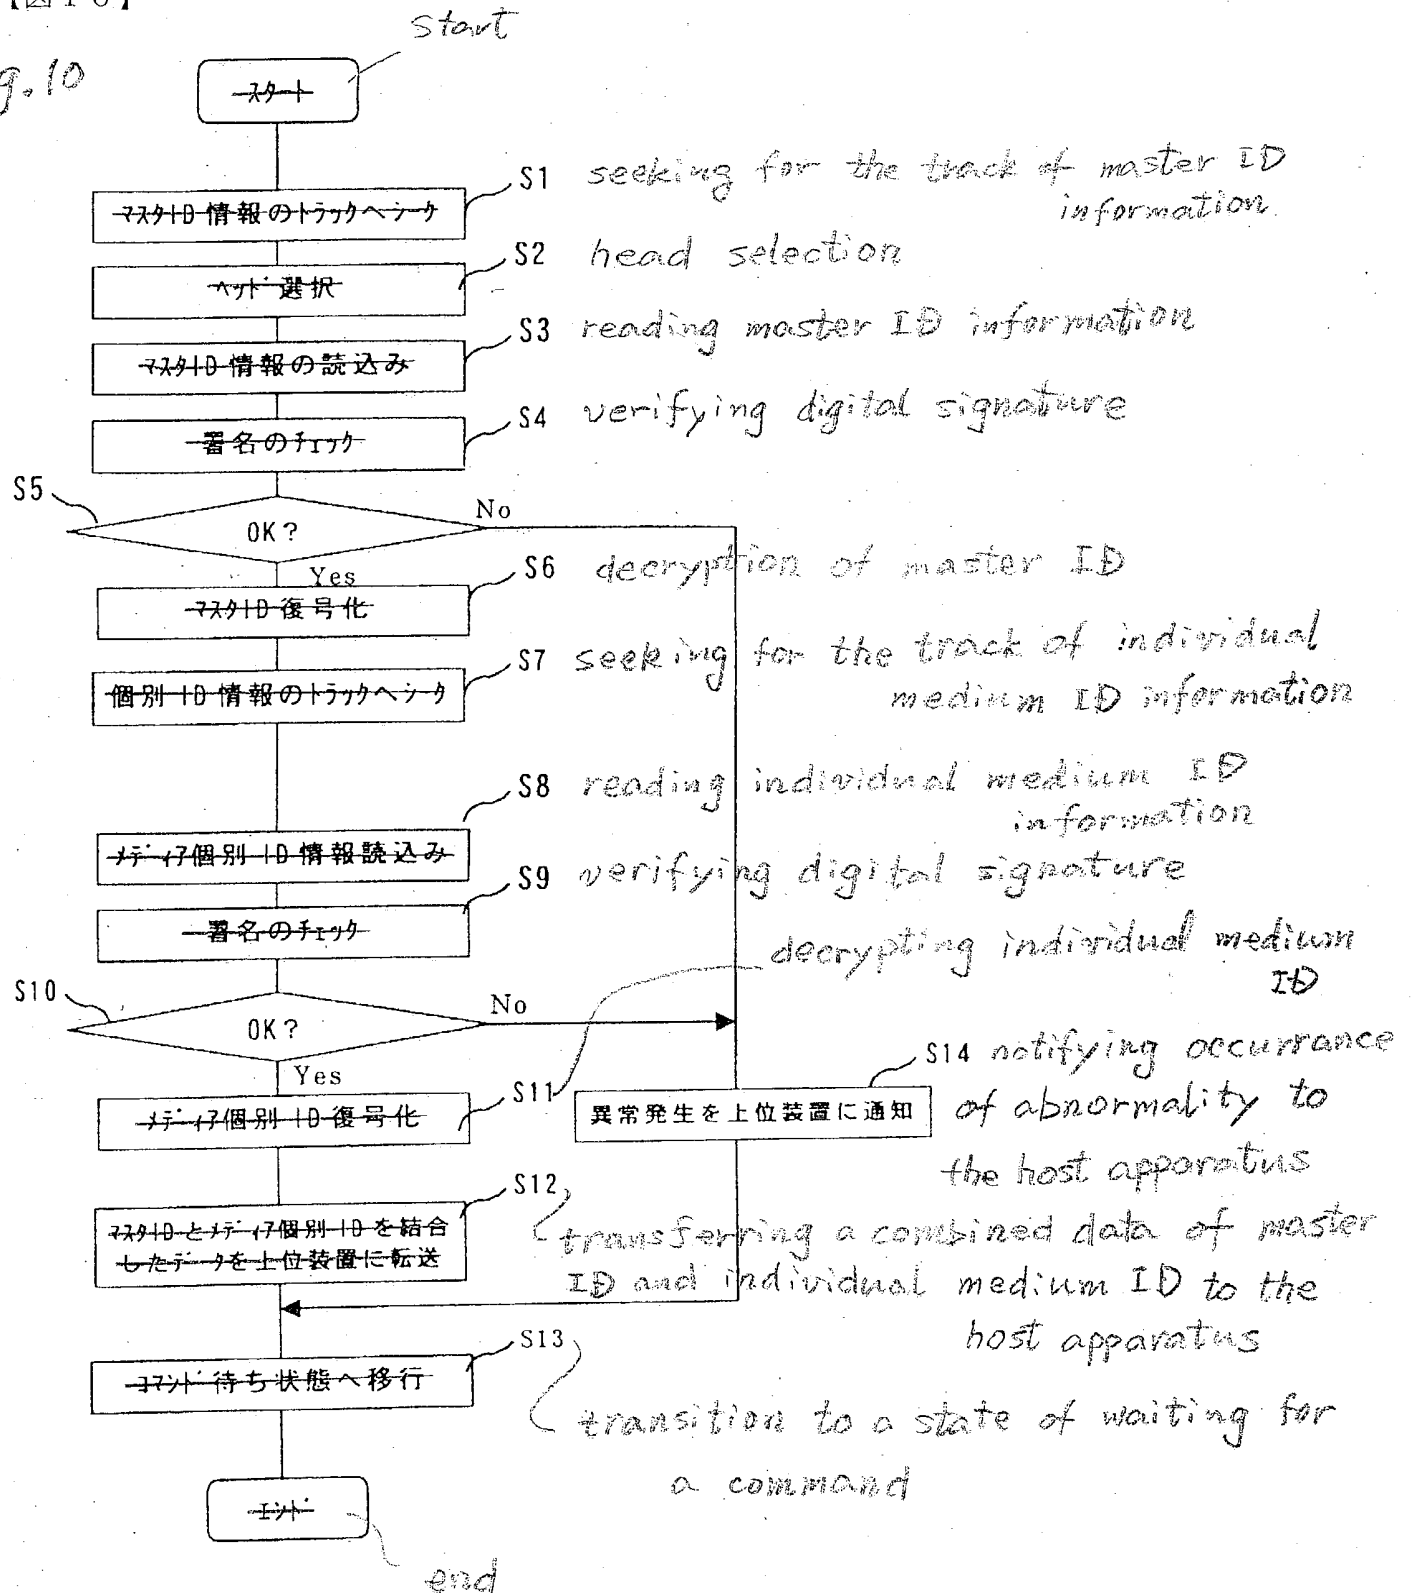 【図10】
Start
g.10
スタート
S1 seeking for the track of master ID
information
マスタID情報のトラックへシーク
S2 head selection
ヘッド選択
S3 reading master ID information
マスタID情報の読込み
S4 verifying digital signature
署名のチェック
S5
OK?
No
Yes
S6 decryption of master ID
マスタID復号化
S7 seeking for the track of individual
medium ID information
個別ID情報のトラックへシーク
S8 reading individual medium ID
information
メディア個別ID情報読込み
S9 verifying digital signature
署名のチェック
decrypting individual medium
ID
S10
OK?
No
Yes
S11
メディア個別ID復号化
S14 notifying occurrance
of abnormality to
the host apparatus
異常発生を上位装置に通知
S12
マスタIDとメディア個別IDを結合
したデータを上位装置に転送
transferring a combined data of master
ID and individual medium ID to the
host apparatus
S13
コマンド待ち状態へ移行
transition to a state of waiting for
a command
エンド
end